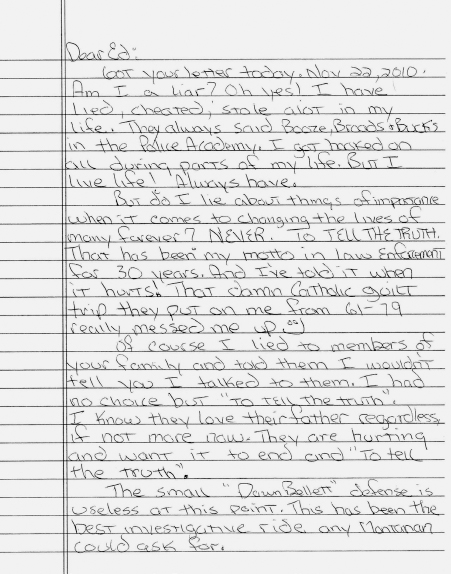 Dear Ed:
Got your letter today. Nov 22, 2010.
Am I a liar? Oh yes! I have
lied, cheated, stole alot in my
life. They always said Booze, Broads & Bucks
in the Police Academy. I got hooked on
all during parts of my life. But I
live life! Always have.
But do I lie about things of importance
when it comes to changing the lives of
many forever? NEVER. To TELL THE TRUTH.
That has been my motto in law Enforcement
for 30 years. And I've told it when
it hurts! That damn Catholic guilt
trip they put on me from 61-79
really messed me up.
Of course I lied to members of
your family and told them I wouldn't
tell you I talked to them. I had
no choice but "To TELL THE TRUTH".
I know they love their father regardless,
if not more now. They are hurting
and want it to end and "To tell
the truth".
The small "Dawn Bellett" defense is
useless at this point. This has been the
best investigative ride any Montanan
could ask for.